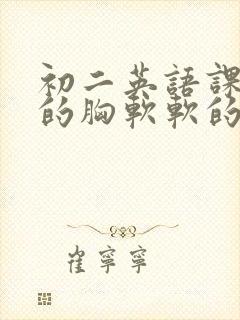 初二英語課
的胸軟軟的
崔寧寧